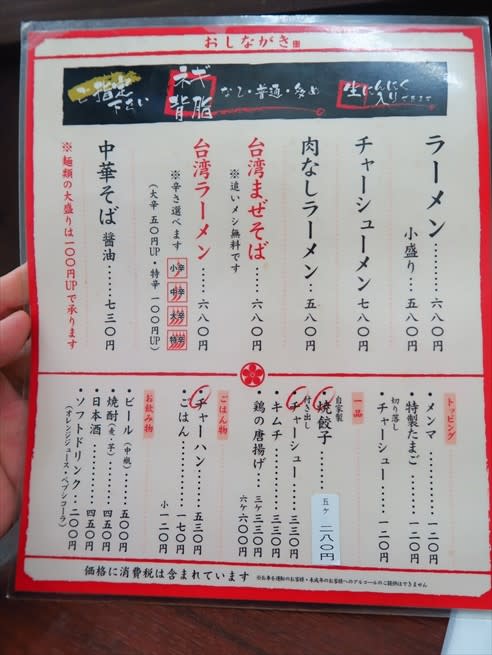 おしながき
ご指定下さい
ネギ
背脂
なし・普通・多め
生にんにく入りできます
ラーメン……六八〇円
小盛り…五八〇円
チャーシューメン 七八〇円
肉なしラーメン…五八〇円
台湾まぜそば……六八〇円
※追いメシ無料です
台湾ラーメン……六八〇円
※辛さ選べます
小辛
中辛
大辛
特辛
(大辛 五〇円UP・特辛 一〇〇円UP)
中華そば 醤油……七三〇円
※麺類の大盛りは一〇〇円UPで承ります
トッピング
・メンマ……一二〇円
・特製たまご……一二〇円
切り落し
・チャーシュー……一二〇円
一品
自家製
・焼餃子……五ヶ 二八〇円
付き出し
・チャーシュー……三三〇円
・キムチ……三三〇円
・鶏の唐揚げ…三ケ 三三〇円
六ケ 六三〇円
ごはん物
・チャーハン……五三〇円
・ごはん……一七〇円
小 一二〇円
お飲み物
・ビール(中瓶)……五〇〇円
・焼酎(麦・芋)……四五〇円
・日本酒……四五〇円
・ソフトドリンク……二〇〇円
(オレンジジュース・ペプシコーラ)
価格に消費税は含まれています
※お車を運転のお客様・未成年のお客様へのアルコールのご提供はできません